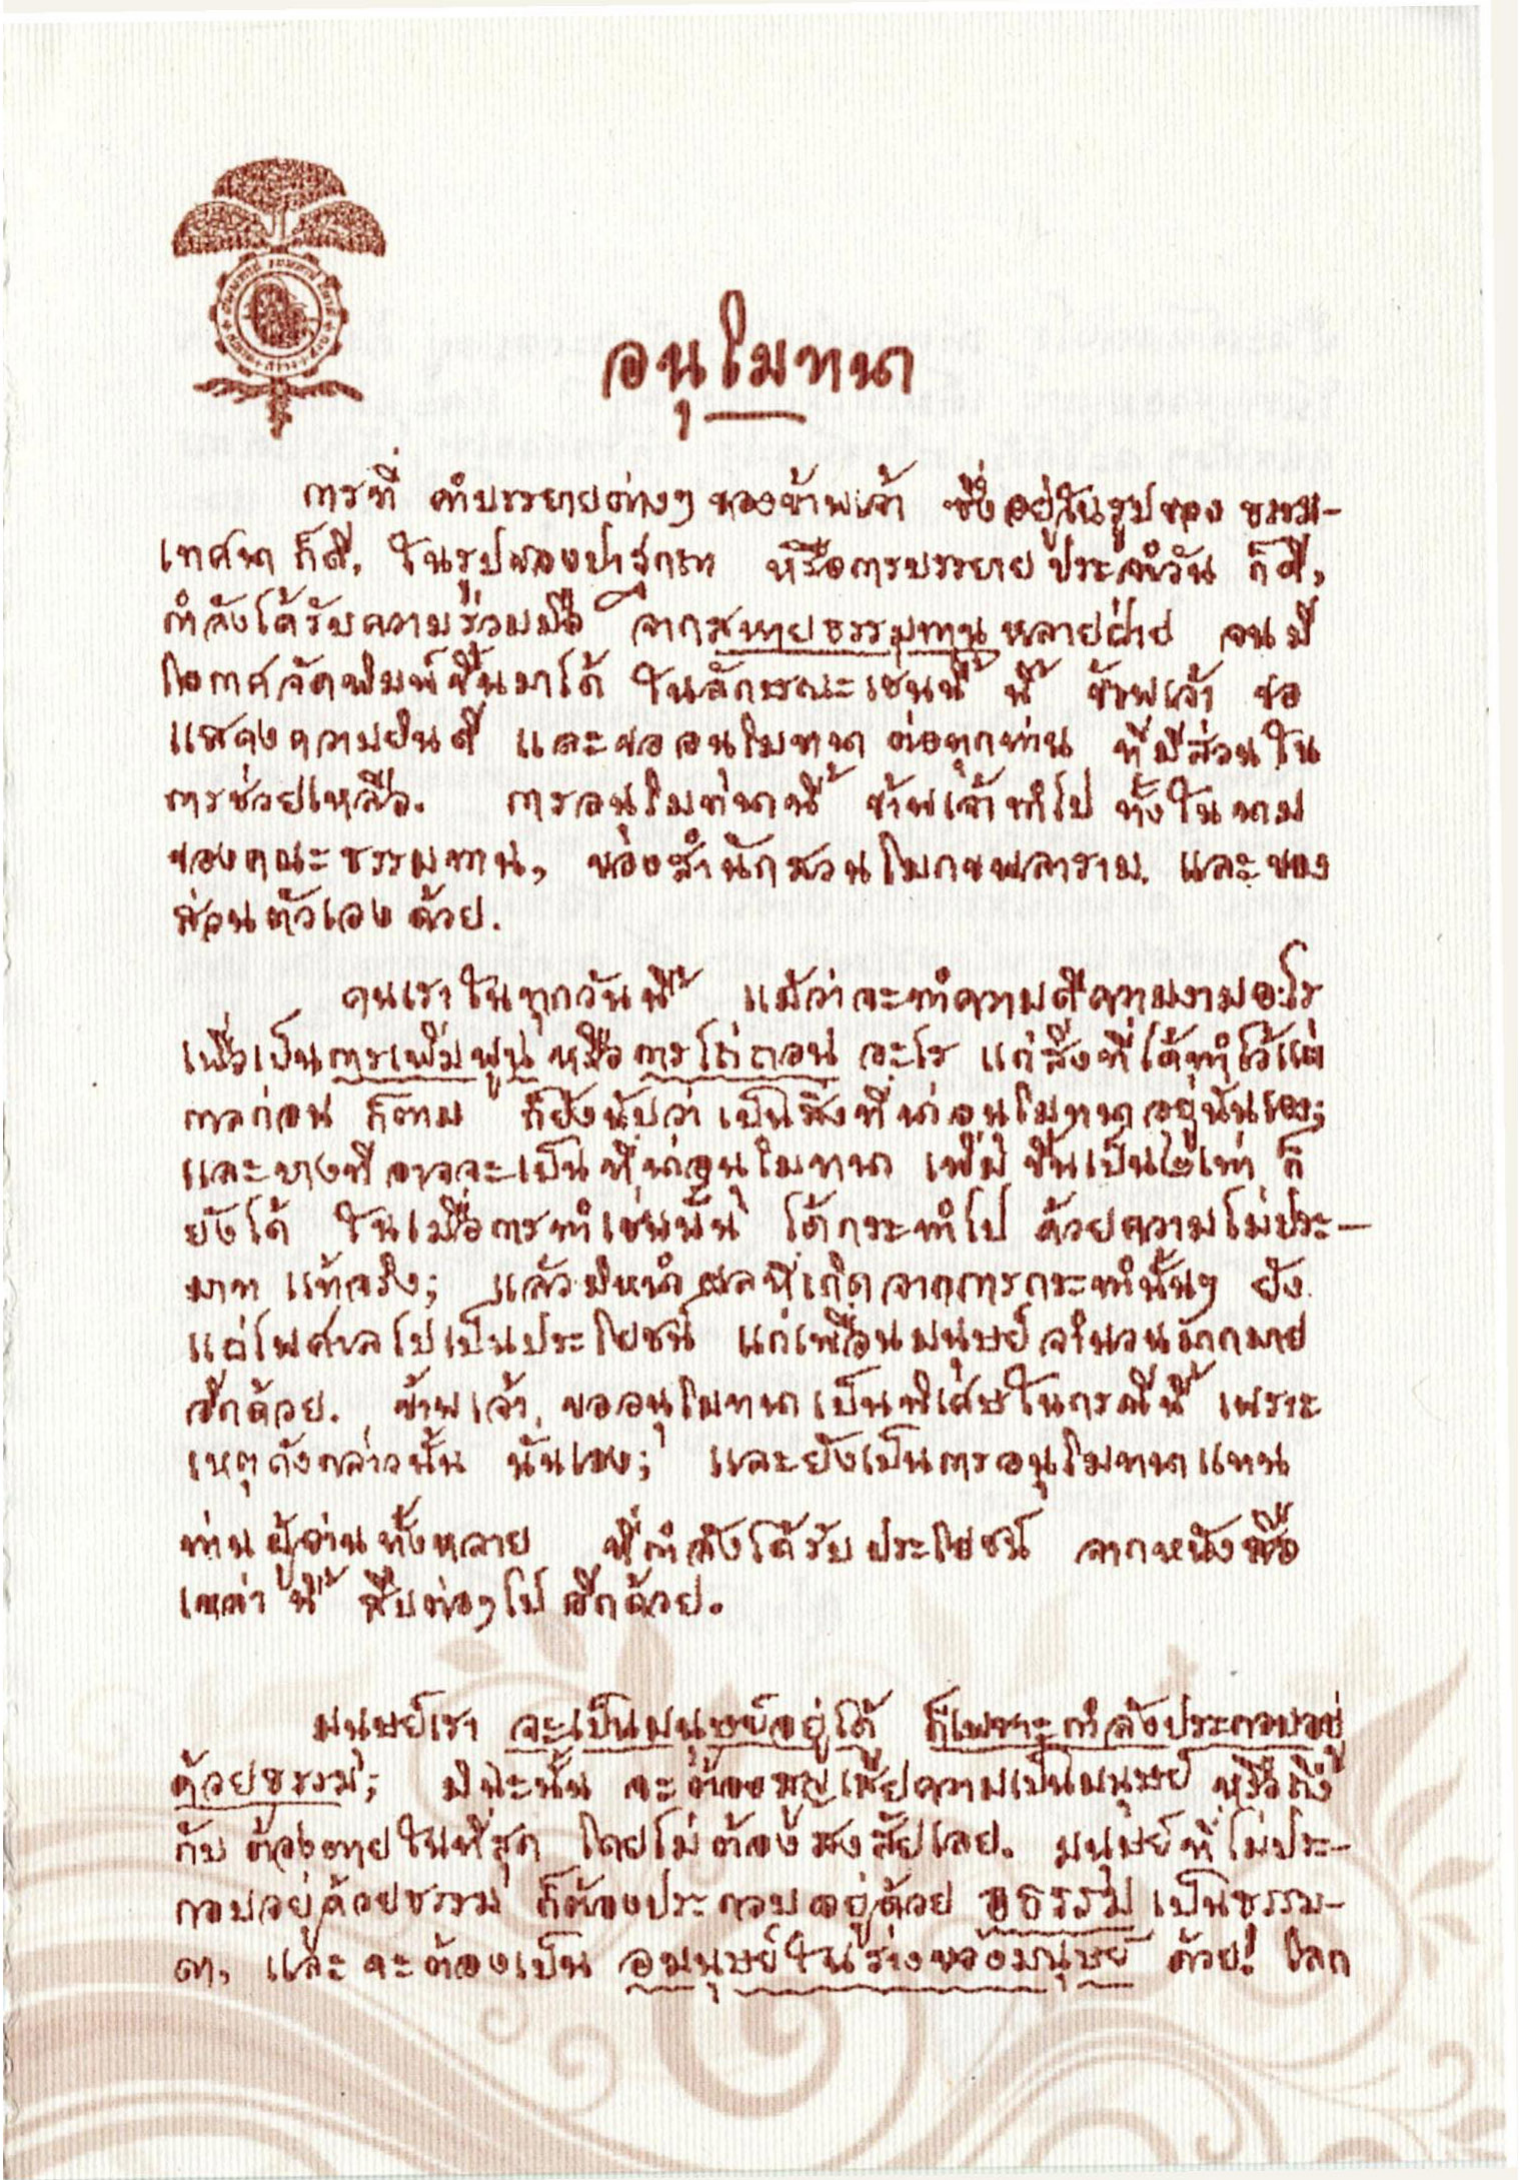 อนุโมทนา
การที่ คำบรรยายต่างๆ ของข้าพเจ้า ซึ่งอยู่ในรูปของ ธรรม-
เทศนา ก็ดี, ในรูปของปาฐกถา หรือการบรรยาย ประจำวัน ก็ดี,
กำลังได้รับความร่วมมือ จากสหายธรรมทาน หลายฝ่าย จนมี
โอกาสจัดพิมพ์ขึ้นมาได้ ในลักษณะเช่นนี้ นี้ ข้าพเจ้า ขอ
แสดงความยินดี และขออนุโมทนา ต่อทุกท่าน ที่มีส่วนใน
การช่วยเหลือ. การอนุโมทนานี้ ข้าพเจ้าทำไป ทั้งในนาม
ของคณะธรรมทาน, ของสำนักสวนโมกขพลาราม, และของ
ส่วนตัวเอง ด้วย.
คนเราในทุกวันนี้ แม้ว่าจะทำความดีความงามอะไร
เพื่อเป็นการเพิ่มพูน หรือการไถ่ถอน อะไร แก่สิ่งที่ได้ทำไว้แต่
กาลก่อน ก็ตาม ก็ยังนับว่า เป็นสิ่งที่น่าอนุโมทนาอยู่นั่นเอง;
และบางทีอาจจะเป็นที่น่าอนุโมทนา เพิ่ม ขึ้นเป็น๒เท่า ก็
ยังได้ ในเมื่อการทำเช่นนั้น ได้กระทำไป ด้วยความไม่ประ-
มาท แท้จริง; แล้วมิหนำ ผลที่เกิดจากการกระทำนั้นๆ ยัง
แผ่ไพศาลไปเป็นประโยชน์ แก่เพื่อนมนุษย์จำนวนมากมาย
อีกด้วย. ข้าพเจ้า, ขออนุโมทนาเป็นพิเศษในกรณีนี้ เพราะ
เหตุดังกล่าวนั้น นั่นเอง; และยังเป็นการอนุโมทนาแทน
ท่านผู้อ่านทั้งหลาย ที่กำลังได้รับ ประโยชน์ จากหนังสือ
เหล่านี้ สืบต่อๆไป อีกด้วย.
มนุษย์เรา จะเป็นมนุษย์อยู่ได้ ก็เพราะกำลังประกอบอยู่
ด้วยธรรม; มิฉะนั้น จะต้องสูญเสียความเป็นมนุษย์ หรือถึง
กับ ต้องตายในที่สุด โดยไม่ต้องสงสัยเลย. มนุษย์ที่ไม่ประ-
กอบอยู่ด้วยธรรม ก็ต้องประกอบอยู่ด้วย อธรรม เป็นธรรม-
ดา, และ จะต้องเป็น อมนุษย์ในร่างของมนุษย์ ด้วย! โลก